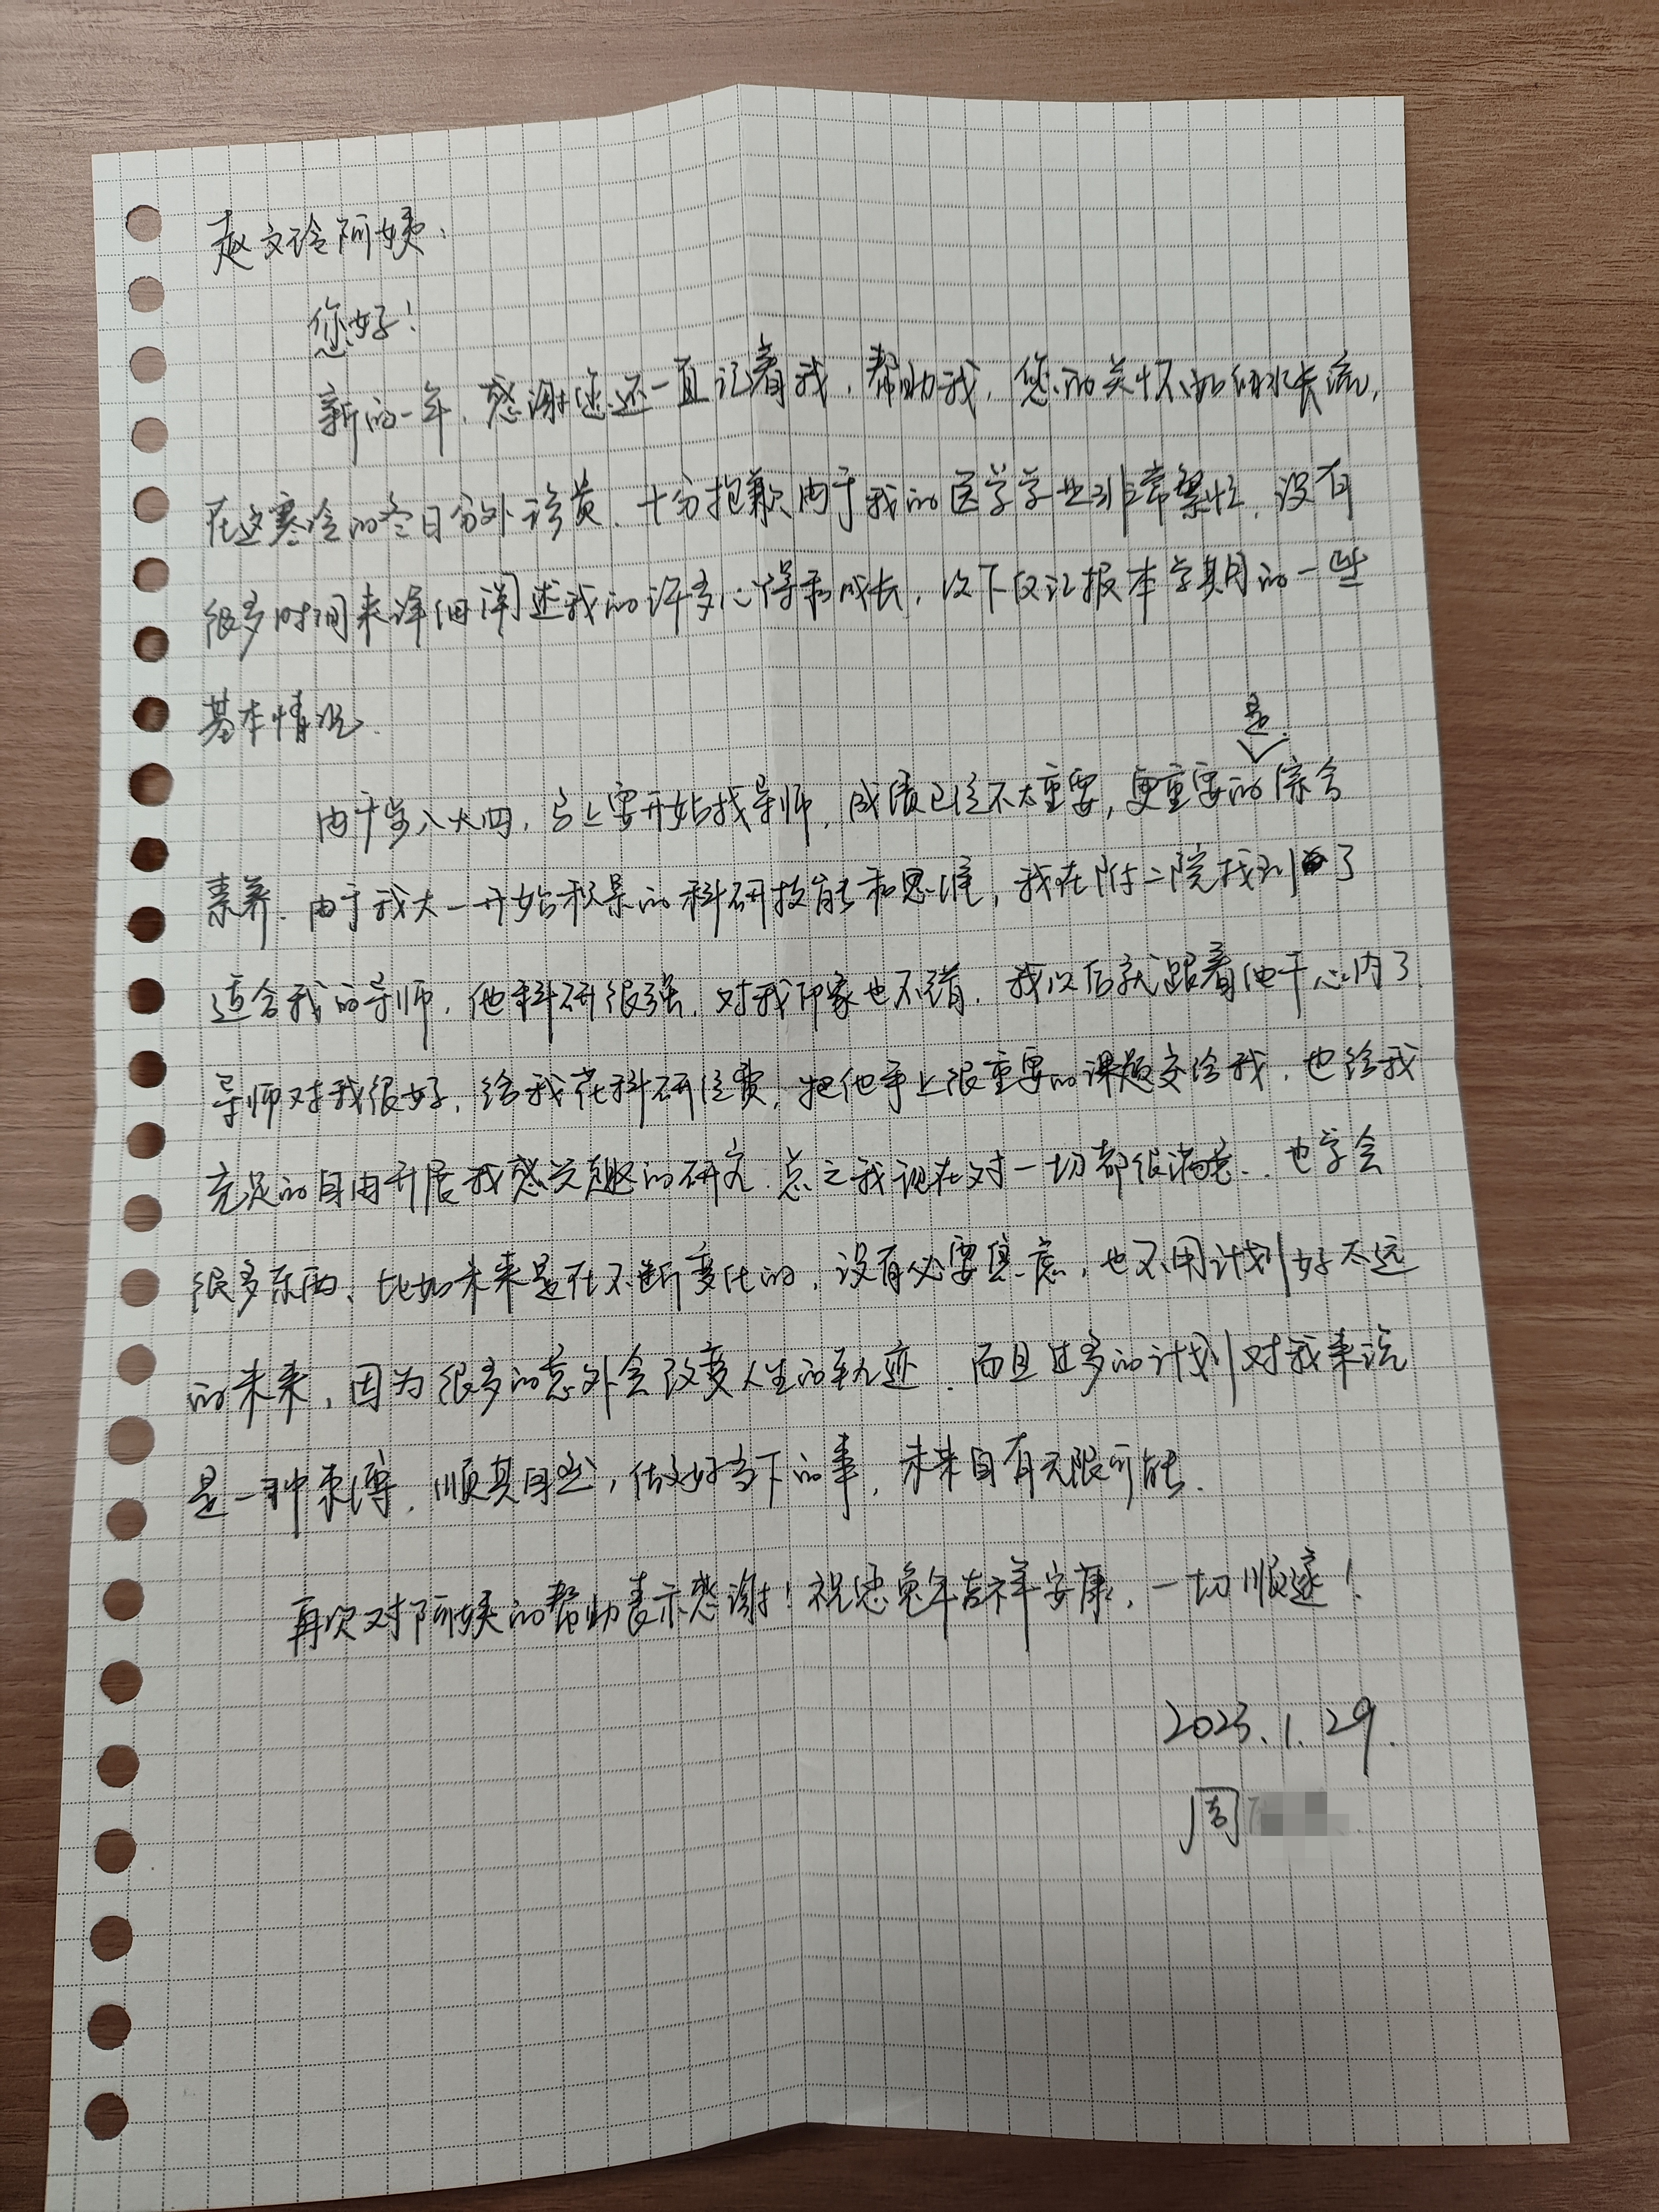 赵文玲阿姨、
您好！
新的一年，感谢您还一直记着我，帮助我，您的关怀如细水长流，
在这寒冷的冬日分外珍贵、十分抱歉由于我的医学学业非常繁忙，没有
很多时间来详细阐述我的许多心得和成长，以下仅汇报本学期的一些
基本情况.
由于步入大四，马上要开始找导师，成绩已经不太重要，更重要的是综合
素养.由于我大一开始积累的科研技能和思维，我在附二院找到了
适合我的导师，他科研很强，对我印象也不错，我以后就跟着他干心内了.
导师对我很好，给我花科研经费，把他手上很重要的课题交给我，也给我
充足的自由开展我感兴趣的研究.总之我现在对一切都很满意.也学会
很多东西、比如未来是在不断变化的，没有必要焦虑，也不用计划好太远
的未来，因为很多的意外会改变人生的轨迹.而且过多的计划对我来说
是一种束缚.顺其自然，做好当下的事，未来自有无限可能.
再次对阿姨的帮助表示感谢！祝您兔年吉祥安康，一切顺遂！
2023.1.29.
周